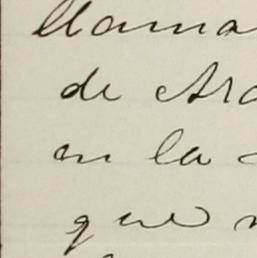 llama
de Ara
en la
que